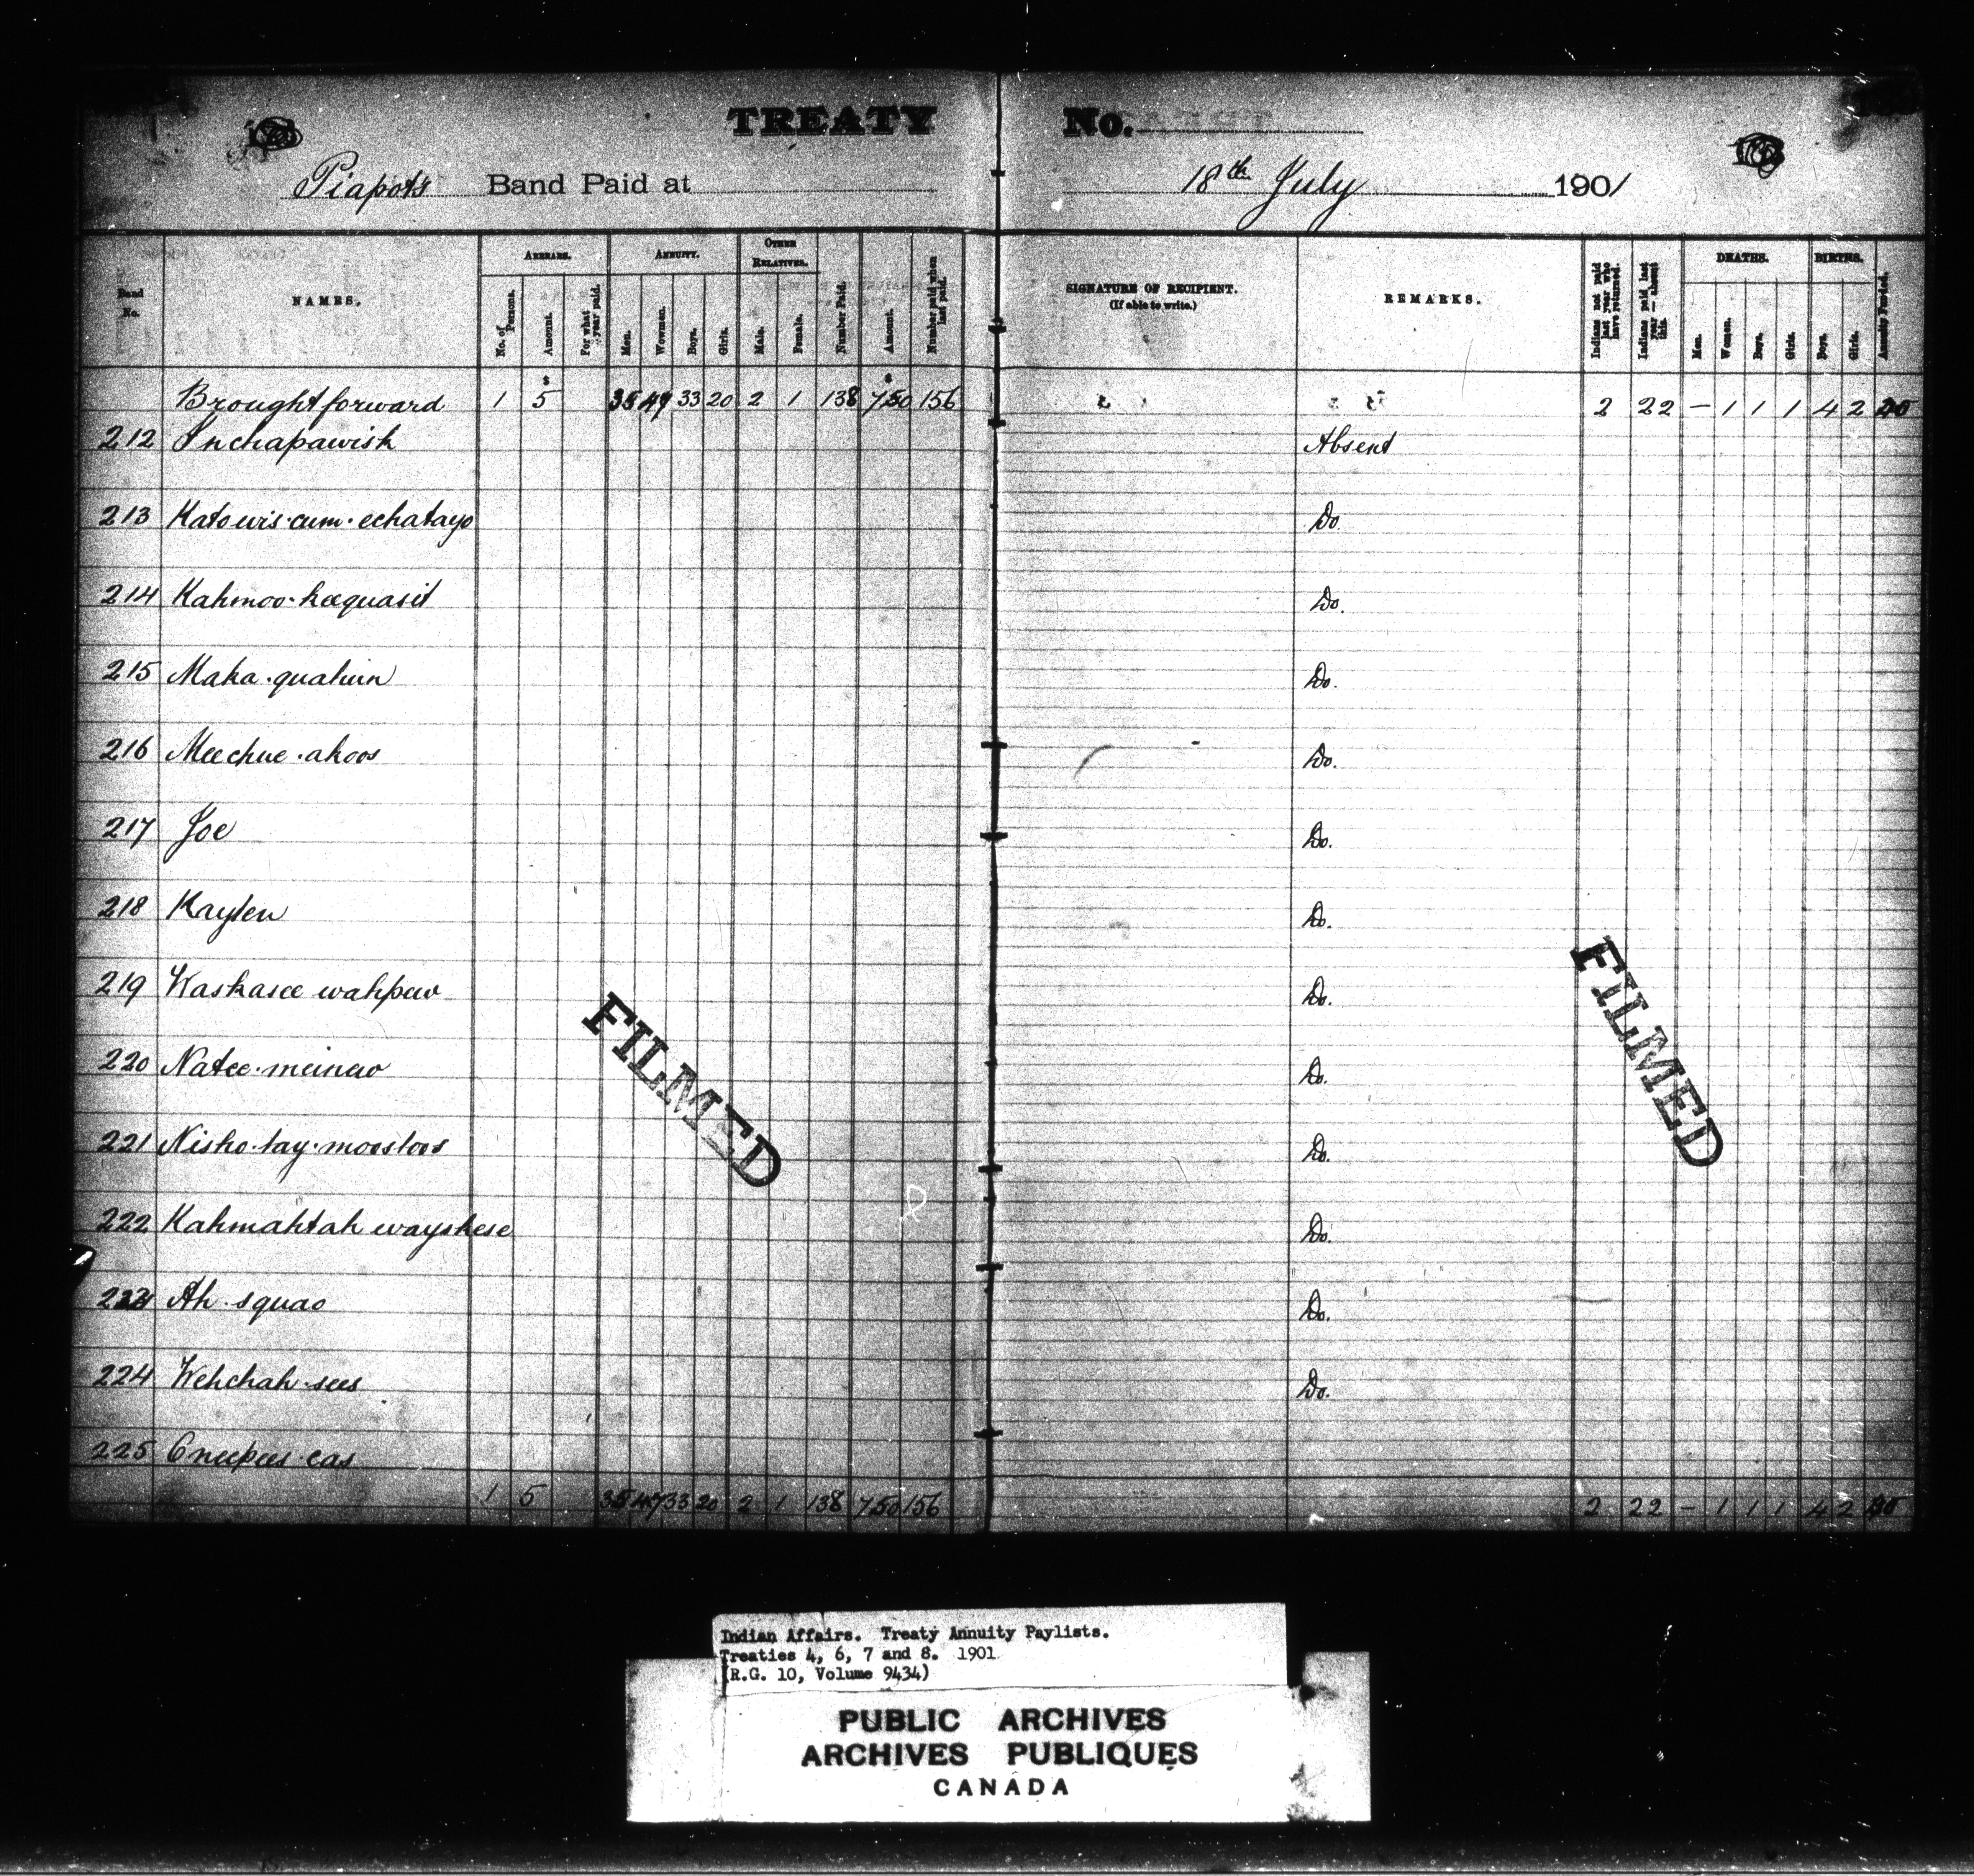 TREATY No.
Piapots Band Paid at 18th July 1901
Band No.
NAMES.
ARREARS.
No. of Persons.
Amount.
For what year paid.
ANNUITY.
Men.
Women.
Boys.
Girls.
OTHER RELATIVES.
Male.
Female.
Number Paid.
Amount.
Number paid when last paid.
SIGNATURE OF RECIPIENT.
(If able to write.)
REMARKS.
Indians not paid last year who have returned.
Indians paid last year — absent this.
DEATHS.
Men.
Women.
Boys.
Girls.
BIRTHS.
Boys.
Girls.
Brought forward 1 5 35 47 33 20 2 1 138 750 156 2 22 — 1 1 1 4 2
212 Inchapawish Absent
213 Katowis·cum·echatayo Do
214 Kahmoo·keequasit Do.
215 Maka·quahun Do.
216 Meechue·ahoos Do.
217 Joe Do.
218 Kayten Do.
219 Kaskasee wahpew Do.
220 Natee·meinew Do.
221 Nisho·tay·moostoos Do.
222 Kahmahtah wayskese Do.
223 Ah·squao Do.
224 Wehchah·sees Do.
225 Oneepees·eas
1 5 35 47 33 20 2 1 138 750 156 2 22 — 1 1 1 4 2
FILMED
FILMED
Indian Affairs. Treaty Annuity Paylists.
Treaties 4, 6, 7 and 8. 1901
(R.G. 10, Volume 9434)
PUBLIC ARCHIVES
ARCHIVES PUBLIQUES
CANADA